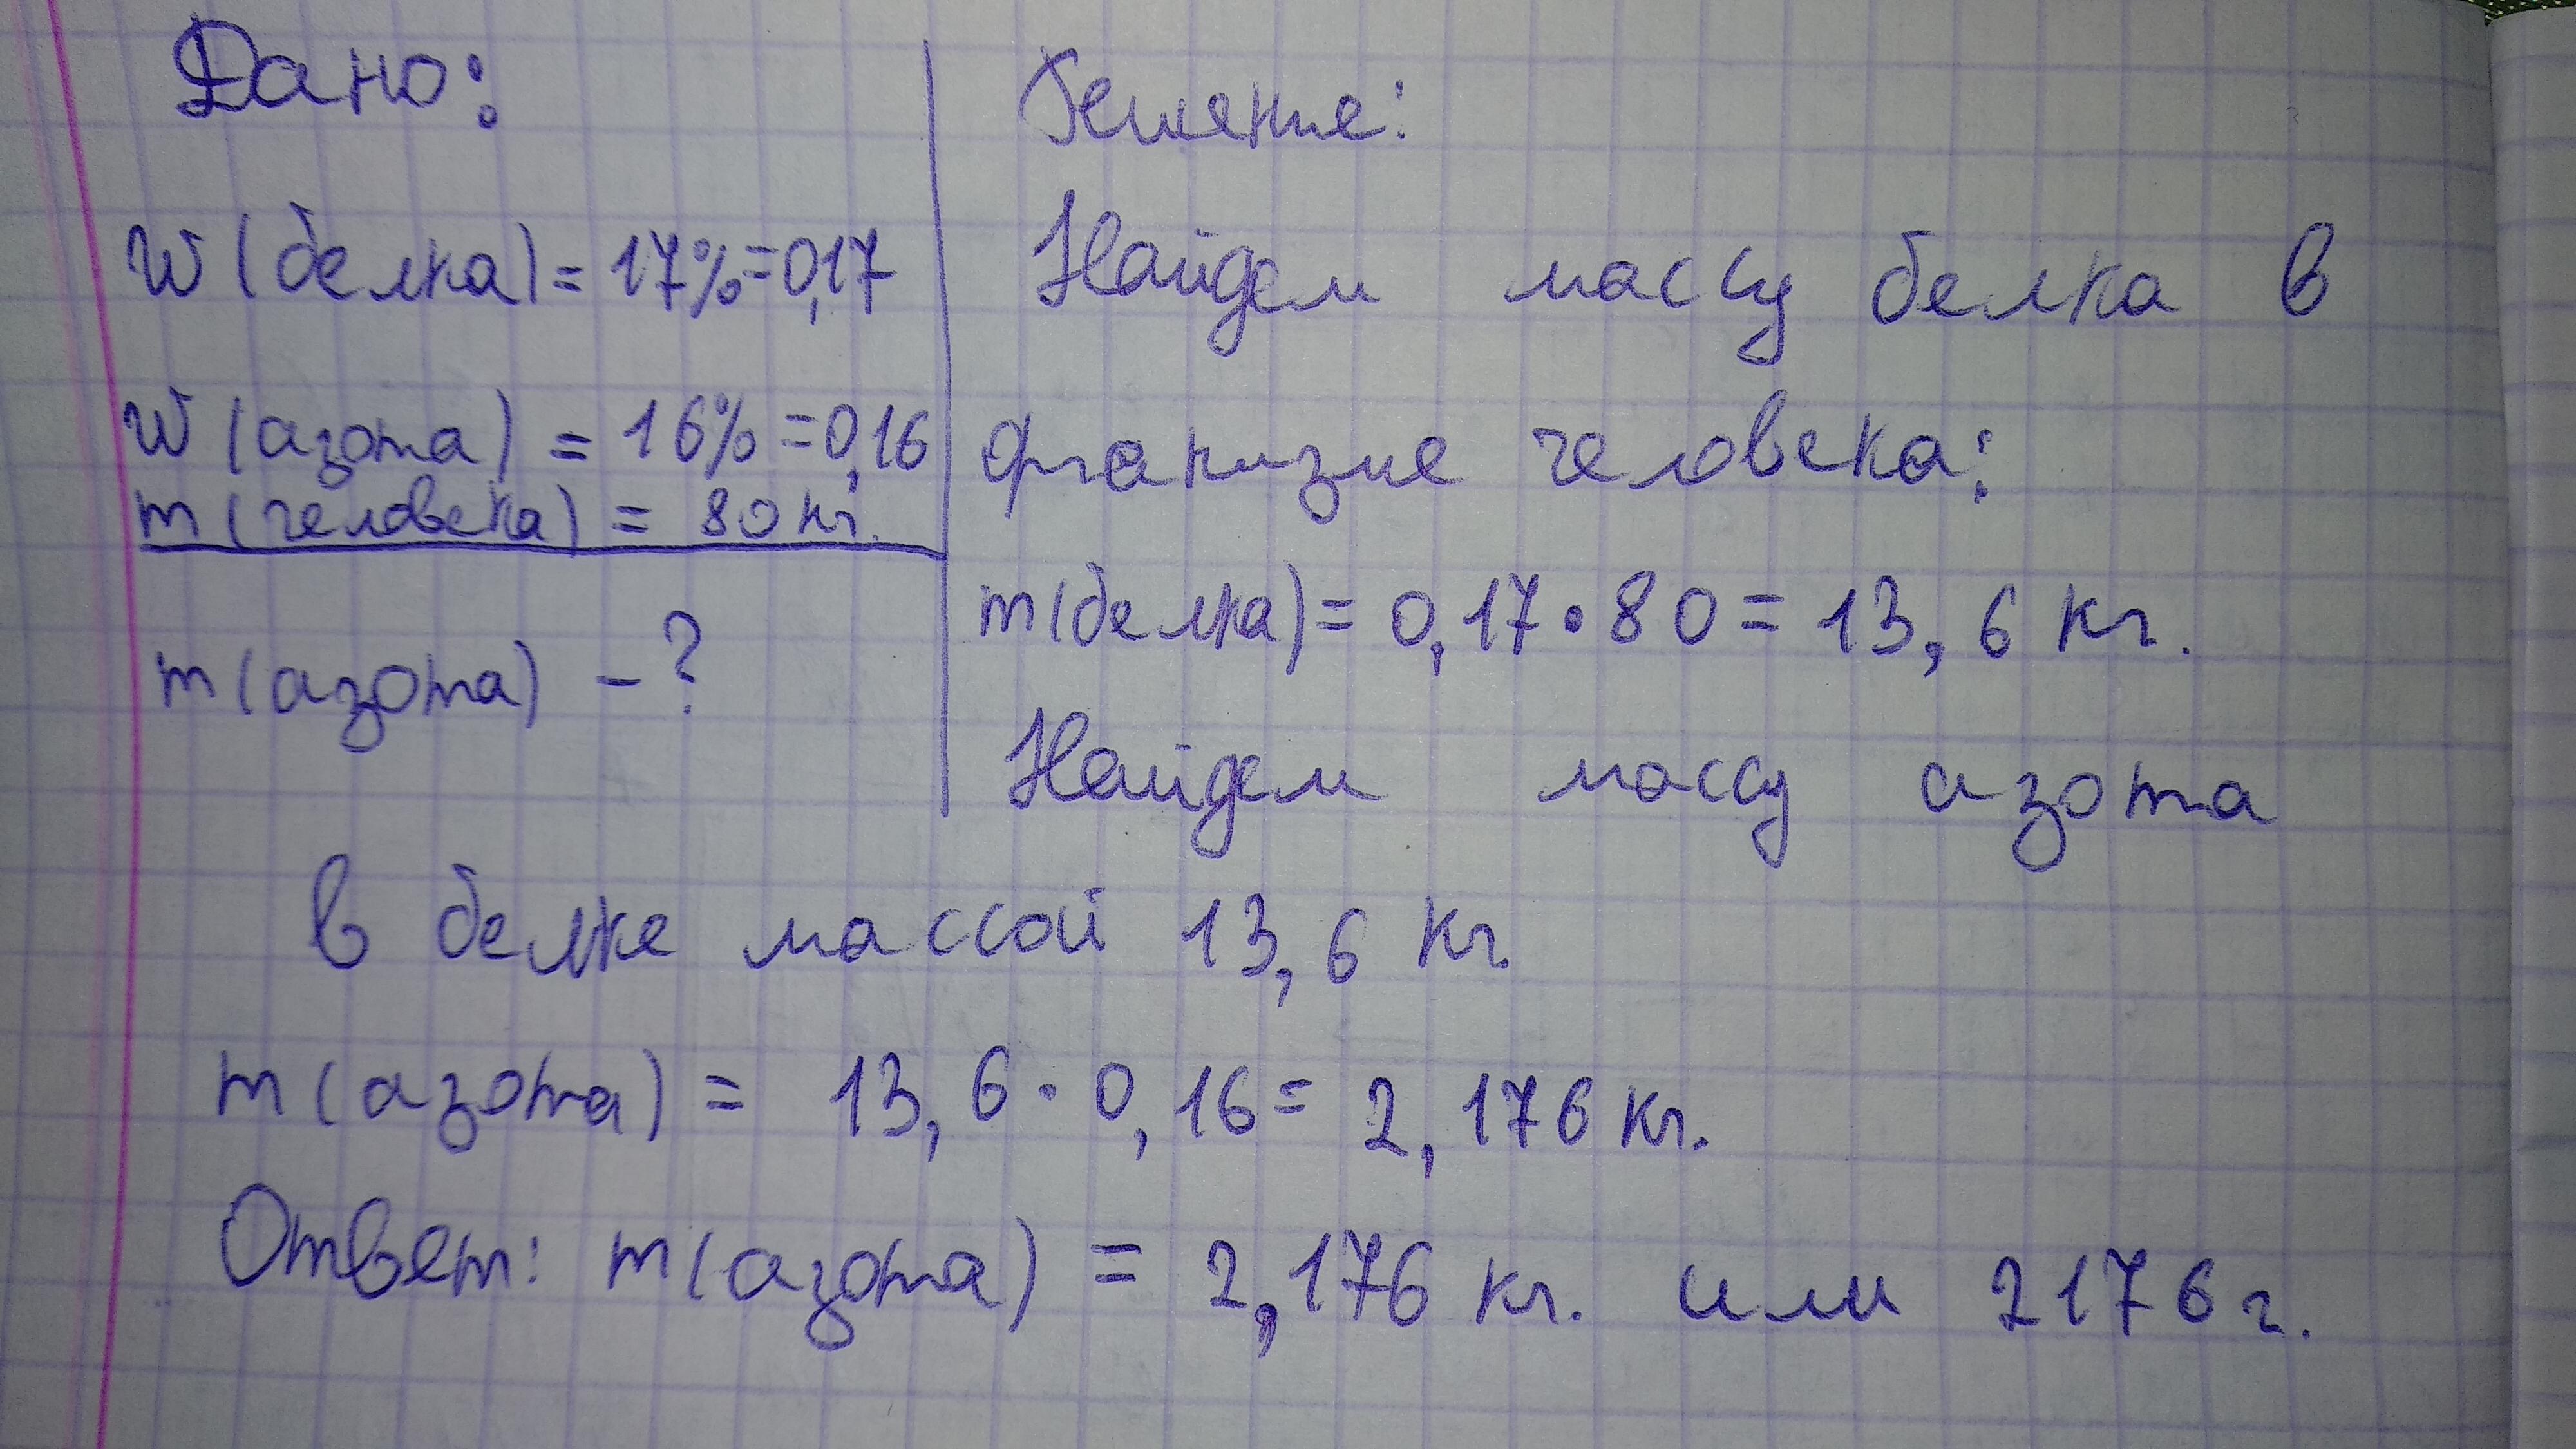 Дано:
W (белка) = 17% = 0,17
W (азота) = 16% = 0,16
m (человека) = 80 кг.
m (азота) - ?
Решение:
Найдем массу белка в
организме человека:
m (белка) = 0,17 • 80 = 13,6 кг.
Найдем массу азота
в белке массой 13,6 кг
m (азота) = 13,6 · 0,16 = 2,176 кг.
Ответ: m (азота) = 2,176 кг. или 2176 г.